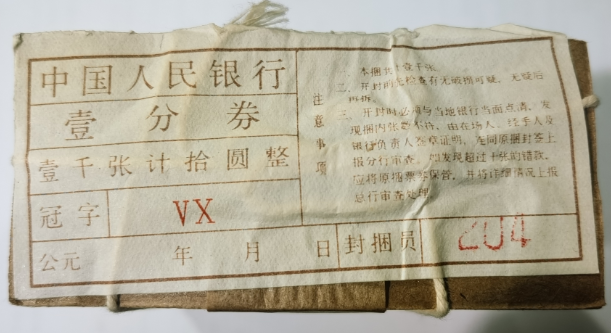 中国人民银行
壹分券
壹千张计拾圆整
冠字 VX
公元 年 月 日 封捆员 204
注意事项
一、本捆共壹千张。
二、开封时先检查有无破损可疑，无疑后
再拆。
三、开封时必须与当地银行当面点清，发
现捆内张数不符，由在场人、经手人及
银行负责人签章证明，连同原捆封签上
报分行审查。如发现超过十张的错款，
应将原捆票等保管，并将详细情况上报
总行审查处理。